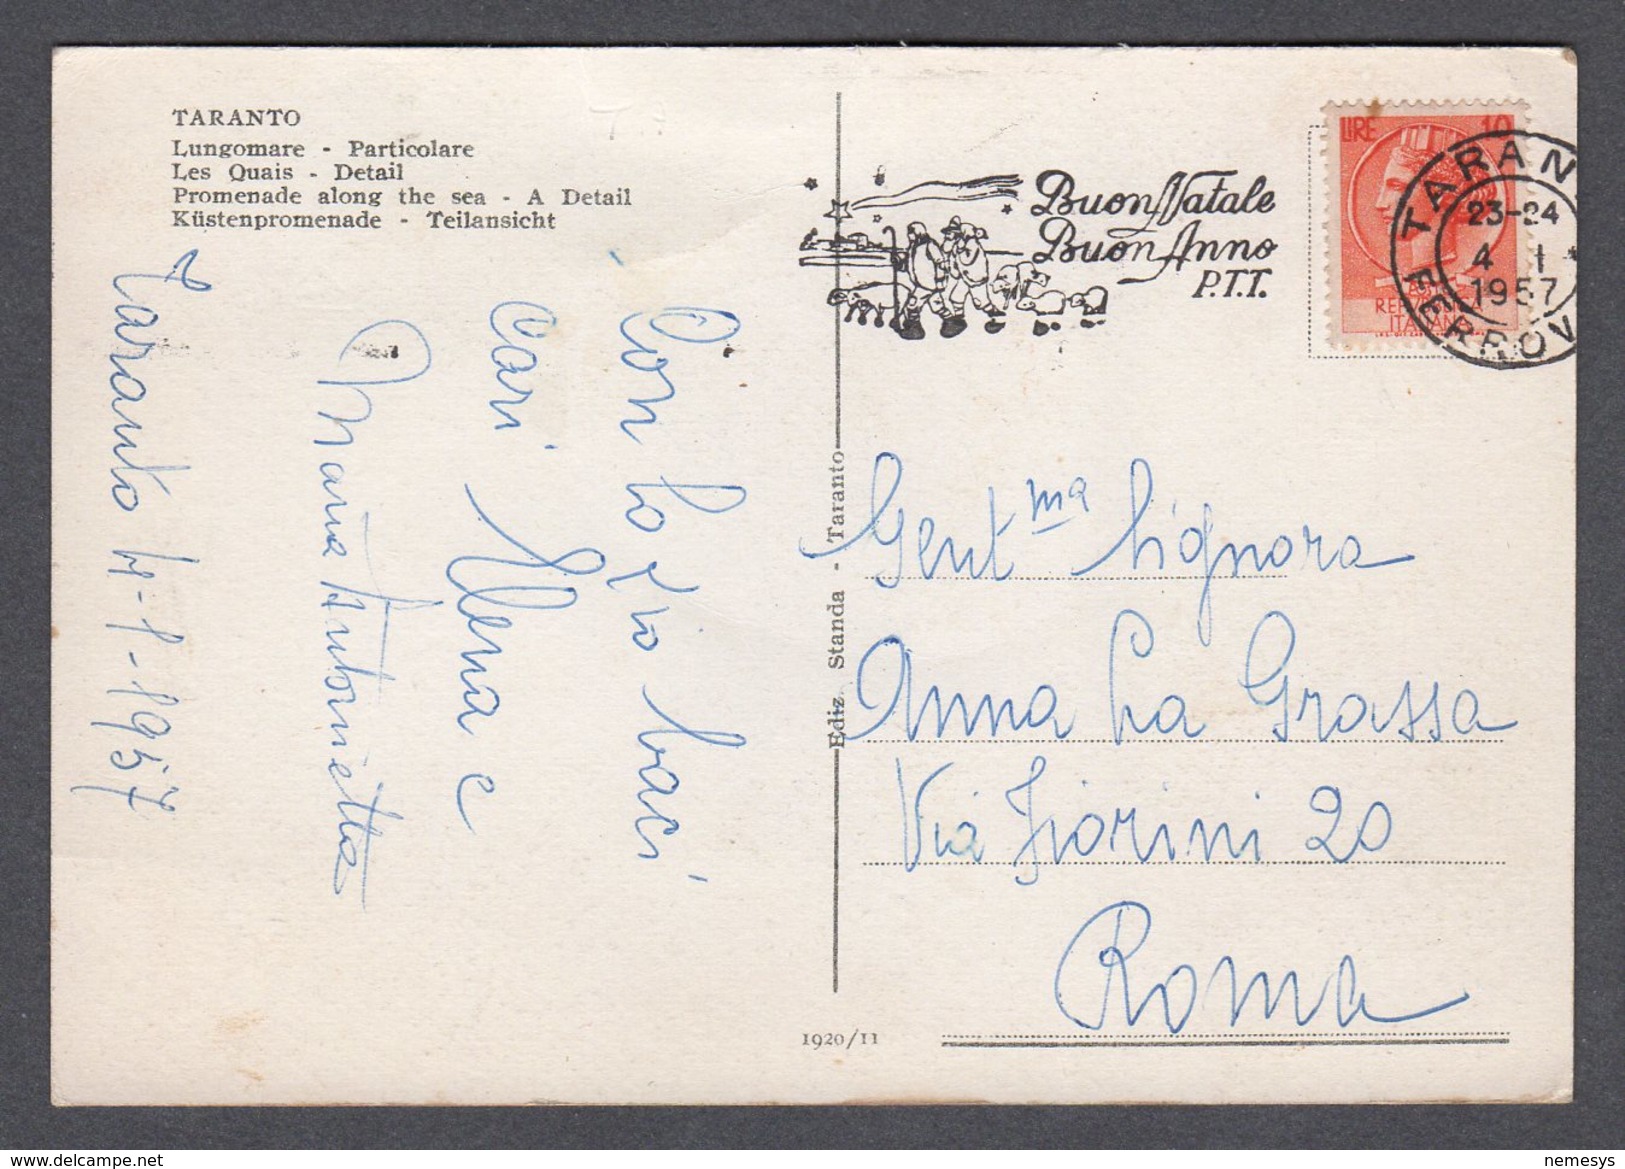 TARANTO
Lungomare - Particolare
Les Quais - Detail
Promenade along the sea - A Detail
Küstenpromenade - Teilansicht
Buon Natale
Buon Anno
P.T.T.
LIRE 10
REPUBBLICA
ITALIANA
TARAN
23-24
4 - I
1957
FERROV
Taranto 4-1-1957
Con lo zio baci
cari Elena e
Maria Antonietta
Ediz. Standa - Taranto
Gent.ma Signora
Anna La Grassa
Via Fiorini 20
Roma
1920/11
www.delcampe.net
nemesys